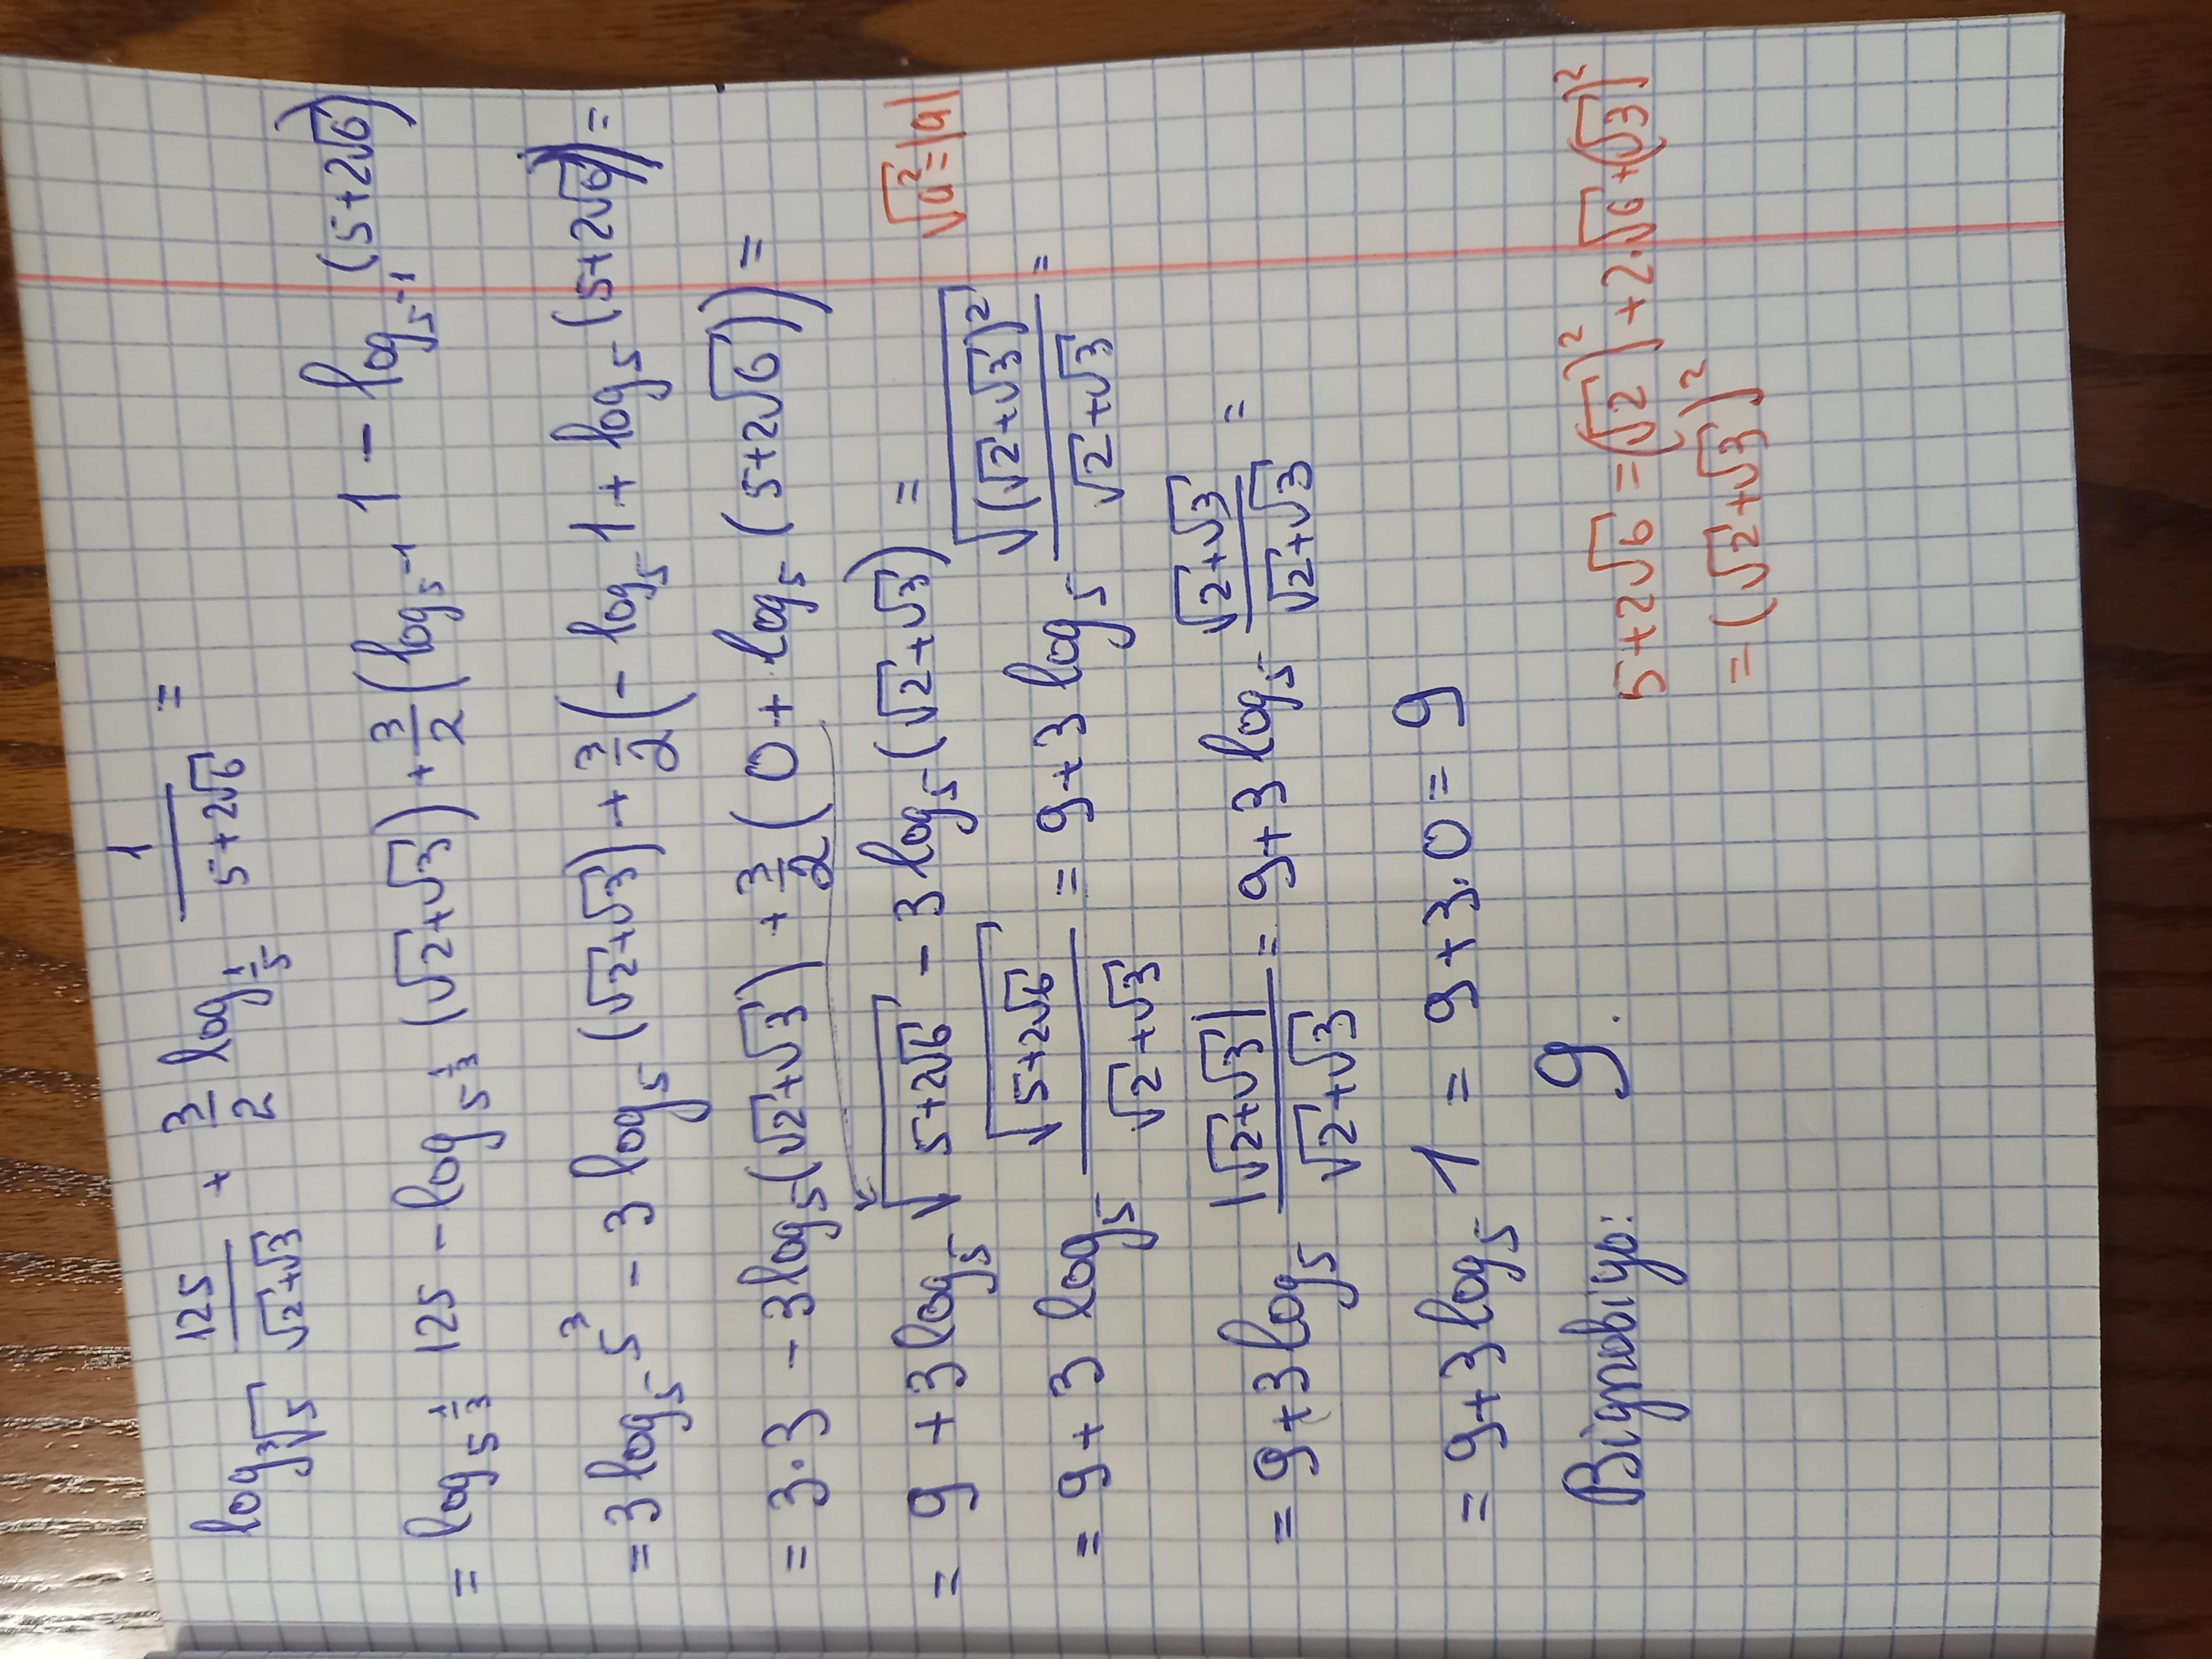 log_{∛5} 125/(√2+√3) + 3/2 log_{1/5} 1/(5+2√6) =
= log_{5^{1/3}} 125 - log_{5^{1/3}} (√2+√3) + 3/2 (log_{5^{-1}} 1 - log_{5^{-1}} (5+2√6))
= 3 log_5 5^3 - 3 log_5 (√2+√3) + 3/2 (- log_5 1 + log_5 (5+2√6)) =
= 3·3 - 3 log_5 (√2+√3) + 3/2 (0 + log_5 (5+2√6)) =
= 9 + 3 log_5 √(5+2√6) - 3 log_5 (√2+√3) =
√a² = |a|
= 9 + 3 log_5 √(5+2√6)/(√2+√3) = 9 + 3 log_5 √((√2+√3)²)/(√2+√3) =
= 9 + 3 log_5 |√2+√3|/(√2+√3) = 9 + 3 log_5 (√2+√3)/(√2+√3) =
= 9 + 3 log_5 1 = 9 + 3·0 = 9
Відповідь: 9.
5+2√6 = (√2)² + 2·√6 + (√3)²
= (√2+√3)²